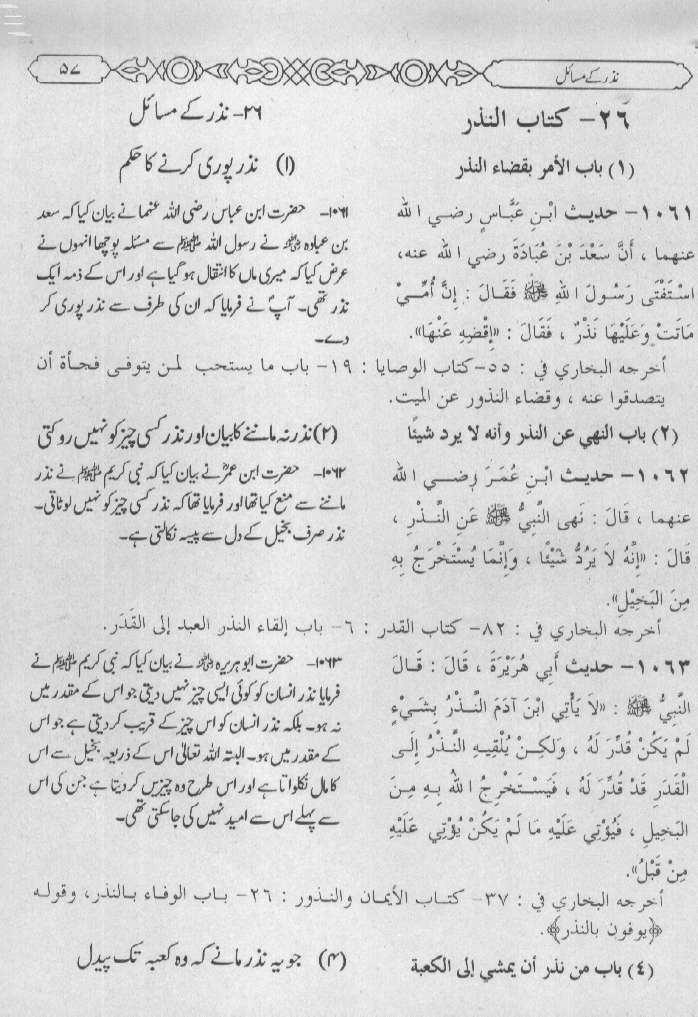 نذر کے مسائل
۵۷
٢٦- كتاب النذر
(١) باب الأمر بقضاء النذر
١٠٦١- حديث ابْنِ عَبَّاسٍ رضي الله
عنهما ، أَنَّ سَعْدَ بْنَ عُبَادَةَ رضي الله عنه،
اسْتَفْتَى رَسُولَ اللهِ ﷺ فَقَالَ : إِنَّ أُمِّيْ
مَاتَتْ وَعَلَيْهَا نَذْرٌ ، فَقَالَ : «اِقْضِهِ عَنْهَا».
۲۶- نذر کے مسائل
(۱) نذر پوری کرنے کا حکم
۱۰۶۱- حضرت ابن عباس رضی اللہ عنہما نے بیان کیا کہ سعد
بن عبادہ رضی اللہ عنہ نے رسول اللہ ﷺ سے مسئلہ پوچھا انہوں نے
عرض کیا کہ میری ماں کا انتقال ہو گیا ہے اور اس کے ذمہ ایک
نذر تھی۔ آپؐ نے فرمایا کہ ان کی طرف سے نذر پوری کر
دے۔
أخرجه البخاري في : ٥٥- كتاب الوصايا : ١٩- باب ما يستحب لمن يتوفى فجأة أن
يتصدقوا عنه ، وقضاء النذور عن الميت.
(٢) باب النهي عن النذر وأنه لا يرد شيئًا
١٠٦٢- حديث ابْنِ عُمَرَ رضي الله
عنهما ، قَالَ : نَهى النَّبِيُّ ﷺ عَنِ النَّذْرِ ،
قَالَ : «إِنَّهُ لاَ يَرُدُّ شَيْئًا ، وَإِنَّمَا يُسْتَخْرَجُ بِهِ
مِنَ البَخِيْلِ».
(۲) نذر نہ ماننے کا بیان اور نذر کسی چیز کو نہیں روکتی
۱۰۶۲- حضرت ابن عمرؓ نے بیان کیا کہ نبی کریم ﷺ نے نذر
ماننے سے منع کیا تھا اور فرمایا تھا کہ نذر کسی چیز کو نہیں لوٹاتی۔
نذر صرف بخیل کے دل سے پیسہ نکالتی ہے۔
أخرجه البخاري في : ٨٢- كتاب القدر : ٦- باب إلقاء النذر العبد إلى القَدَر.
١٠٦٣- حديث أَبِي هُرَيْرَةَ ، قَالَ : قَالَ
النَّبِيُّ ﷺ : «لاَ يَأْتِي ابْنَ آدَمَ النَّذْرُ بِشَيْءٍ
لَمْ يَكُنْ قُدِّرَ لَهُ ، وَلَكِنْ يُلْقِيهِ النَّذْرُ إِلَى
الْقَدَرِ قَدْ قُدِّرَ لَهُ ، فَيَسْتَخْرِجُ اللهُ بِهِ مِنَ
البَخِيلِ ، فَيُؤْتِي عَلَيْهِ مَا لَمْ يَكُنْ يُؤْتِي عَلَيْهِ
مِنْ قَبْلُ».
۱۰۶۳- حضرت ابو ہریرہ رضی اللہ عنہ نے بیان کیا کہ نبی کریم ﷺ نے
فرمایا نذر انسان کو کوئی ایسی چیز نہیں دیتی جو اس کے مقدر میں
نہ ہو۔ بلکہ نذر انسان کو اس چیز کے قریب کر دیتی ہے جو اس
کے مقدر میں ہو۔ البتہ اللہ تعالیٰ اس کے ذریعہ بخیل سے اس
کا مال نکلواتا ہے اور اس طرح وہ چیزیں کر دیتا ہے جن کی اس
سے پہلے اس سے امید نہیں کی جا سکتی تھی۔
أخرجه البخاري في : ٣٧- كتاب الأيمان والنذور : ٢٦- باب الوفاء بالنذر، وقوله
﴿يوفون بالنذر﴾.
(٤) باب من نذر أن يمشي إلى الكعبة
(۴) جو یہ نذر مانے کہ وہ کعبہ تک پیدل